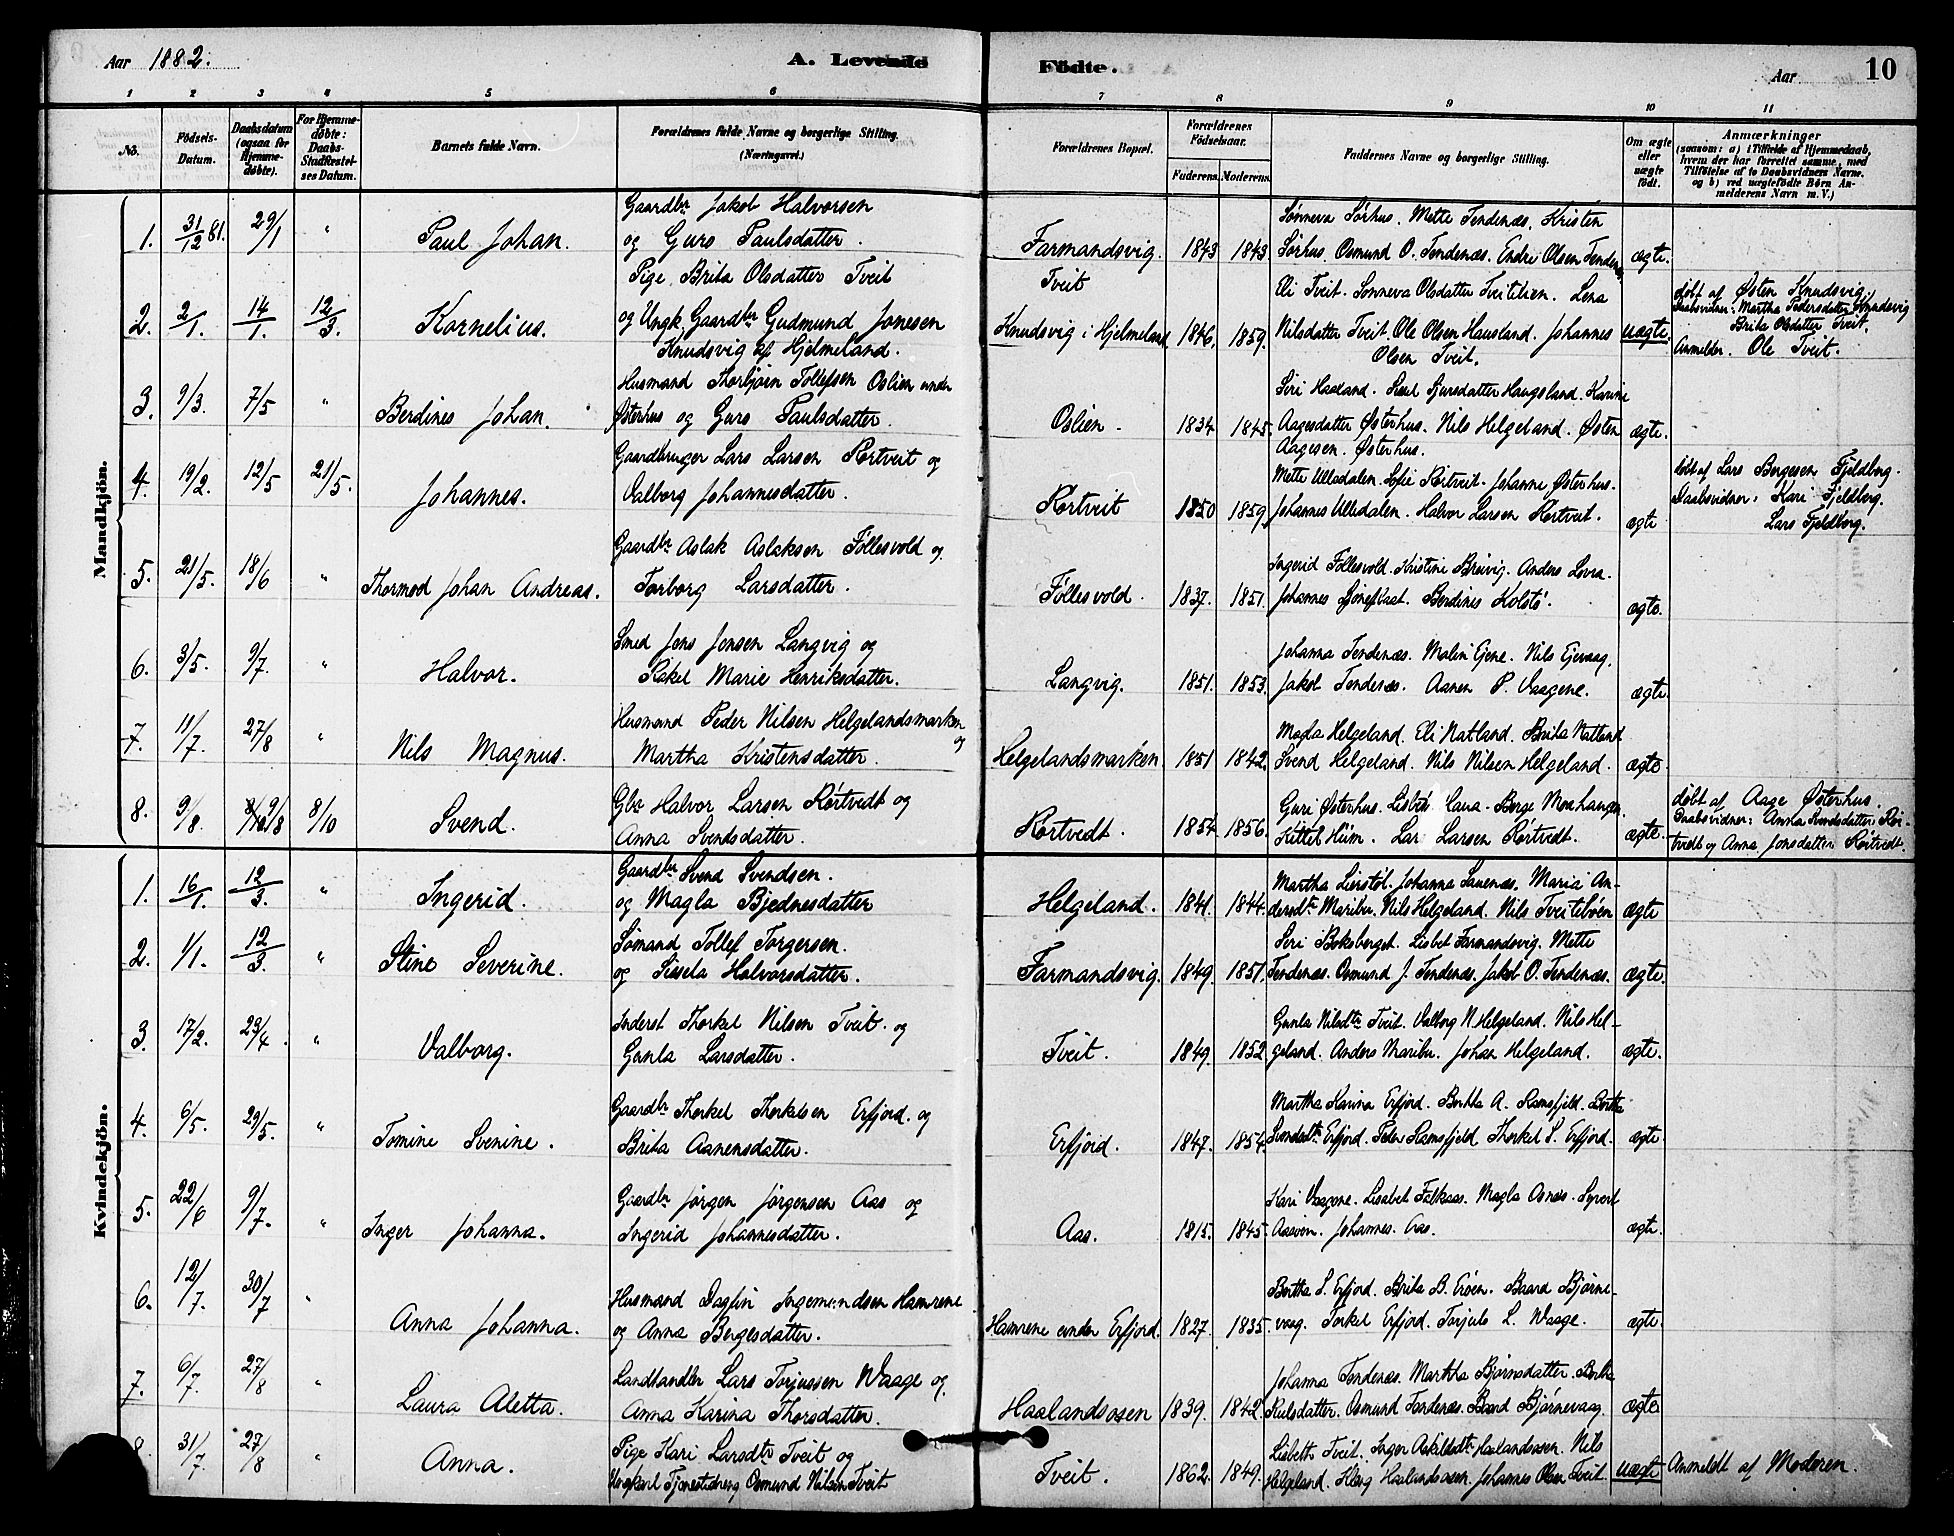 Aar 1882.
A. Levende Födte.
Aar
10
1 2 3 4 5 6 7 8 9 10 11
No.
Födsels-Datum.
Daabsdatum (ogsaa for Hjemmedøbte).
For Hjemmedøbte: Daabs-Stadfæstelses Datum.
Barnets fulde Navn.
Forældrenes fulde Navne og borgerlige Stilling. (Næringsvei.)
Forældrenes Bopæl.
Forældrenes Födselsaar.
Faderens. Moderens.
Faddernes Navne og borgerlige Stilling.
Om ægte eller uægte födt.
Anmærkninger
(saasom: a) i Tilfælde af Hjemmedaab, hvem der har forrettet samme, med Tilföielse af to Daabsvidners Navne. og b) ved uægtefödte Börn Anmelderens Navn m. V.)
Mandkjön.
1. 31/12 81. 29/1 " Paul Johan. Gaardbr Jakob Halvorsen og Guro Paulsdatter. Farmandsvig. 1843 1843. Sønneva Sørhus. Mette Tendenæs. Kristen Sørhus. Osmund O. Tendenæs. Endre Olsen Tendenæs ægte.
2. 2/1. 14/1. 12/3. Kornelius. Pige Brita Olsdatter Tveit og Ungk. Gaardbr Gudmund Jonesen Knudsvig af Hjelmeland. Tveit Knudsvig i Hjelmeland 1846. 1859. Eli Tveit. Sønneva Olsdatter Tveitelien. Lena Nilsdatter Tveit. Ole Olsen Hausland. Johannes Olsen Tveit. uægte. døbt af Østen Knudsvig. Daabsvidner: Martha Pedersdatter Knudsvig Brita Olsdatter Tveit. Anmelder. Ole Tveit.
3. 9/3. 7/5 " Berdines Johan. Husmand Thorbjørn Tollefsen Oslien under Østerhus og Guro Paulsdatter. Oslien. 1834 1845. Siri Haaland. Sisel Sjursdatter Haugeland. Karine Aagesdatter Østerhus. Nils Helgeland. Østen Aagesen. Østerhus. ægte.
4. 19/2. 12/5 21/5. Johannes. Gaardbruger Lars Larsen Rørtveit og Valborg Johannesdatter. Rørtveit 1850 1859. Mette Ulladalen. Sofie Rørtveit. Johanne Østerhus. Johannes Ulladalen. Halvor Larsen Rørtveit. ægte døbt af Lars Borgesen Fjeldberg. Daabsvidner: Kari Fjeldberg. Lars Fjeldberg.
5. 21/5. 18/6 " Thormod Johan Andreas. Gaardbr Aslak Aslaksen Føllesvold og Torborg Larsdatter. Føllesvold. 1837. 1851. Ingerid Føllesvold. Kristine Breivig. Anders Lovra. Johannes Berdines Kolstø. ægte.
6. 3/5. 9/7. " Halvor. Smed Jens Jensen Langvig og Rakel Marie Henriksdatter. Langvig. 1851. 1853. Johanna Tendenæs. Malin Ejene. Nils Ejevaag. Jakob Tendenæs. Aanen P. Vaagene. ægte
7. 11/7. 27/8 " Nils Magnus. Husmand Peder Nilsen Helgelandsmarken og Martha Kristensdatter. Helgelandsmarken. 1851 1842. Magla Helgeland. Eli Natland. Brita Natland Svend Helgeland. Nils Nilsen Helgeland. ægte.
8. 9/8. 9/8 8/10 Svend. Gbr Halvor Larsen Rørtvedt og Anna Svendsdatter. Rørtvedt. 1854 1856. Guri Østerhus. Lisbet Berge Moehaugen Kittel Hiim. Lars Larsen Rørtvedt. ægte. døbt af Aage Østerhus. Daabsvidner: Anna Svendsdatter Rørtvedt og Anna Jonsdatter Rørtvedt.
Kvindekjön.
1. 16/1. 12/3. " Ingerid. Gaardbr Svend Svendsen. og Magla Bjednesdatter Helgeland. 1841. 1844. Martha Lierstøl. Johanna Sauenæs. Maria Andersdr Maribu. Nils Helgeland. Nils Tveitebøen ægte
2. 1/1. 12/3. " Stine Severine. Sømand Tollef Torgersen. og Sissela Halvorsdatter. Farmandsvig. 1849. 1851. Siri Boksberget. Lisbet Farmandsvig. Mette Tendenæs. Osmund J. Tendenæs. Jakob O. Tendenæs. ægte.
3. 17/2. 23/4. " Valborg. Inderst Thorkel Nilsen Tveit. og Gunla Larsdatter. Tveit. 1849. 1852. Gunla Nilsdtr Tveit. Valborg N. Helgeland. Nils Helgeland. Anders Maribu. Johan Helgeland. ægte.
4. 6/5. 29/5. " Tomine Svenine. Gaardbr Thorkel Thorkelsen Erfjord. og Brita Aanensdatter. Erfjord. 1847. 1854. Martha Karina Erfjord. Bertha A. Ramsfjeld. Bertha Svendsdtr Erfjord. Peder Ramsfjeld Thorkel S. Erfjord. ægte
5. 22/6 9/7. " Inger Johanna. Gaardbr Jørgen Jørgensen Aas og Ingerid Johannesdatter. Aas. 1815. 1845. Kari Vaagene. Lisabet Falkaas. Magla Osnæs. Syvert Aasven. Johannes Aas. ægte.
6. 12/7. 30/7 " Anna Johanna. Husmand Dagfin Ingemundsen Hamrene og Anna Bergesdatter. Hamrene under Erfjord. 1827. 1835. Bertha S. Erfjord. Brita B. Erøen. Baard Bjørnevaag. Torkel Erfjord. Torjuls L. Waage. ægte.
7. 6/7. 27/8 " Laura Aletta. Landhandler Lars Torjussen Waage og Anna Karina Thorsdatter. Haalandsosen 1839. 1842. Johanna Tendenæs. Martha Bjørnsdatter. Bertha Osmund Tendenæs. Baard Bjørnevaag. ægte
8. 31/7. 27/8 " Anna. Pige Kari Larsdtr Tveit og Ungkarl Tjenestedreng Osmund Nilsen Tveit Tveit. 1862. 1849. Lisbeth Tveit. Inger Askildsdtr Haalandsosen. Nils Helgeland. Haalandsosen Johannes Olsen Tveit. uægte Anmeldt af Moderen.